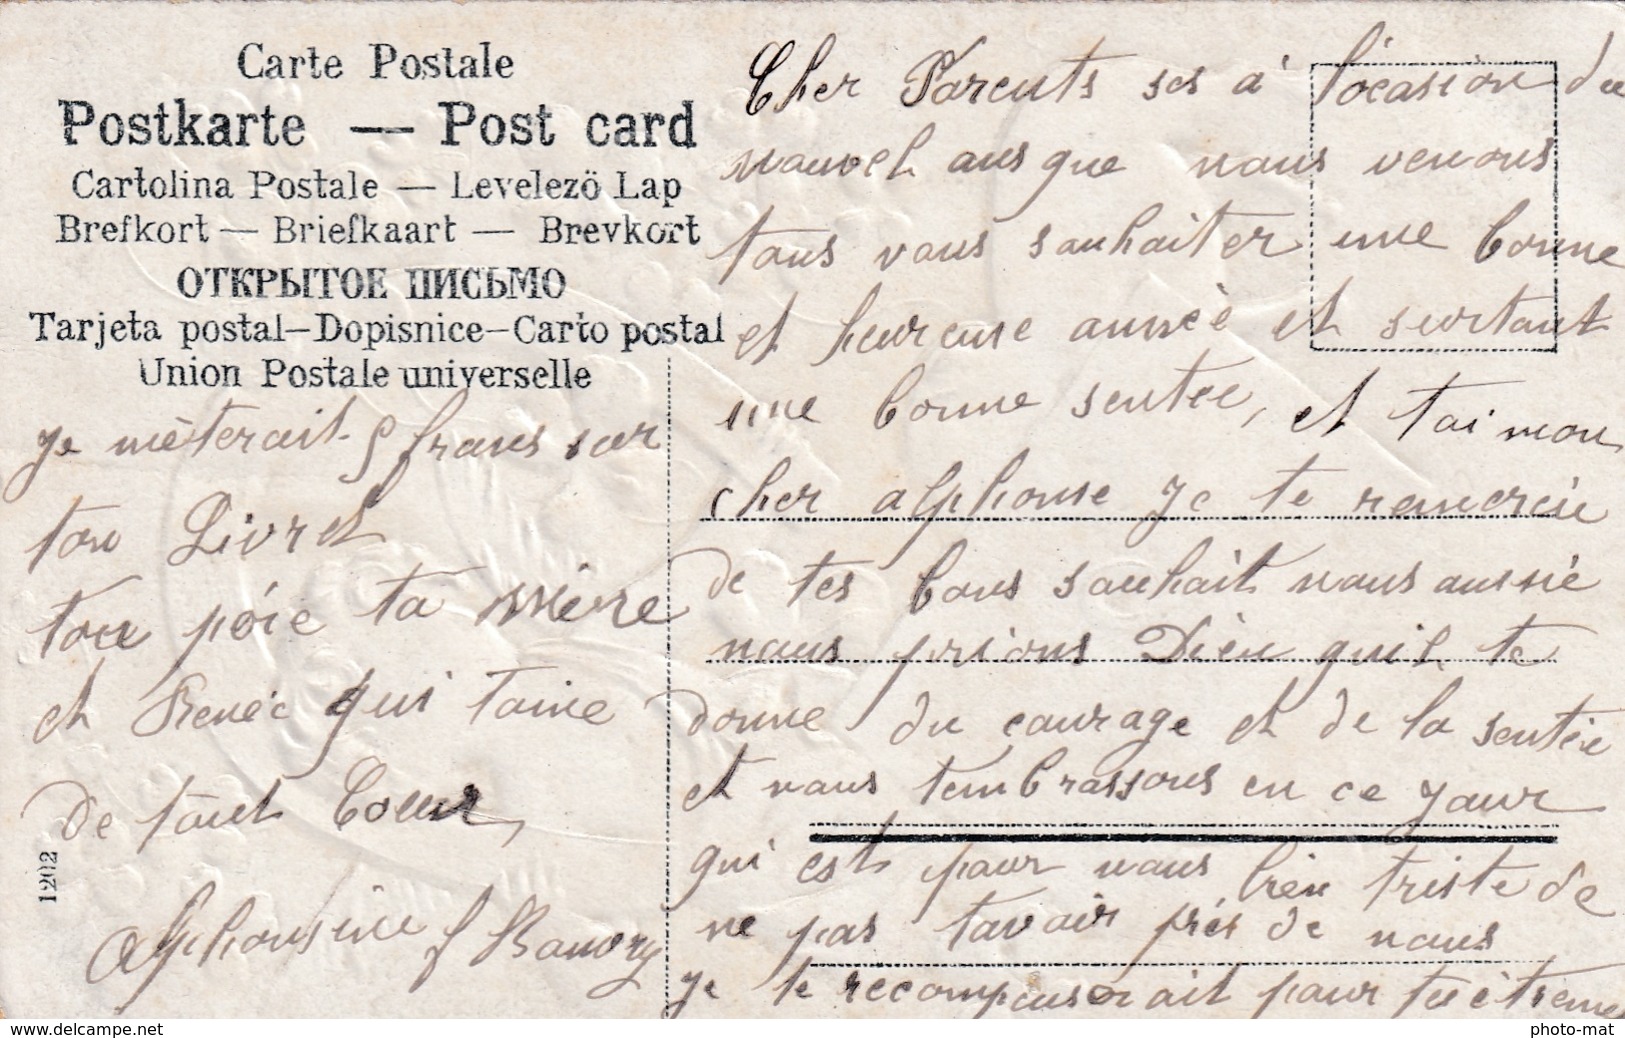 Carte Postale
Postkarte — Post card
Cartolina Postale — Levelezö Lap
Brefkort — Briefkaart — Brevkort
ОТКРЫТОЕ ПИСЬМО
Tarjeta postal—Dopisnice—Carto postal
Union Postale universelle
Cher Parents ses a l'ocasion du
nouvel ans que nous venons
tous vous souhaiter une bonne
et heureuse année et surtout
une bonne sentée, et toi mon
cher alphonse Je te remercie
de tes bons souhait nous aussie
nous prions Dieu quil te
donne du courage et de la sentée
et nous tembrassons en ce Jour
qui est pour nous bien triste de
ne pas tavoir prés de nous
Je te recompenserait pour tes étrenne
Je mèterait 5 frans sur
ton Livret
ton pére ta mère
et Renée qui taime
de tout Coeur,
Alphonsine
1202
photo-mat